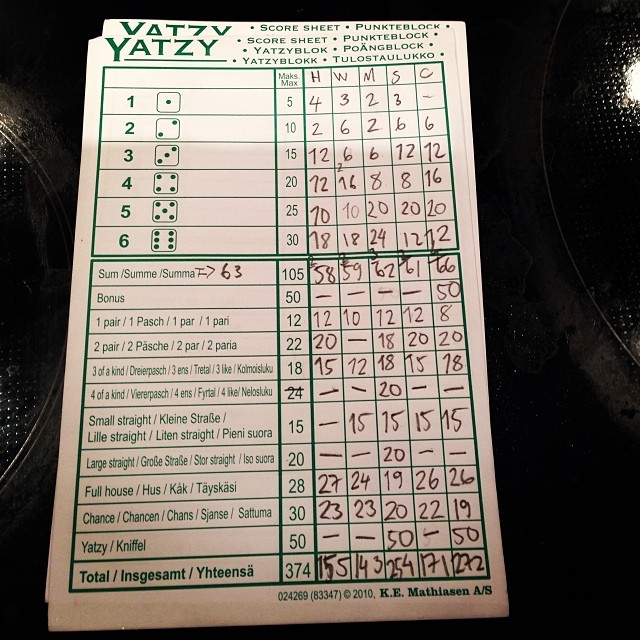 YATZY • SCORE SHEET • PUNKTEBLOCK •
YATZY • SCORE SHEET • PUNKTEBLOCK •
• YATZYBLOK • POÄNGBLOCK •
• YATZYBLOKK • TULOSTAULUKKO •
Maks. Max H W M S C
1 5 4 3 2 3 –
2 10 2 6 2 6 6
3 15 12 6 6 12 12
4 20 12 16 8 8 16
5 25 10 10 20 20 20
6 30 18 18 24 12 12
Sum /Summe /Summa => 63 105 58 59 62 61 66
Bonus 50 – – – – 50
1 pair / 1 Pasch / 1 par / 1 pari 12 12 10 12 12 8
2 pair / 2 Päsche / 2 par / 2 paria 22 20 – 18 20 20
3 of a kind / Dreierpasch / 3 ens / Tretal / 3 like / Kolmoisluku 18 15 12 18 15 18
4 of a kind / Viererpasch / 4 ens / Fyrtal / 4 like/ Nelosluku 24 – – 20 – –
Small straight / Kleine Straße /
Lille straight / Liten straight / Pieni suora 15 – 15 15 15 15
Large straight / Große Straße / Stor straight / Iso suora 20 – – 20 – –
Full house / Hus / Kåk / Täyskäsi 28 27 24 19 26 26
Chance / Chancen / Chans / Sjanse / Sattuma 30 23 23 20 22 19
Yatzy / Kniffel 50 – – 50 – 50
Total / Insgesamt / Yhteensä 374 155 143 254 171 272
024269 (83347) © 2010, K.E. Mathiasen A/S